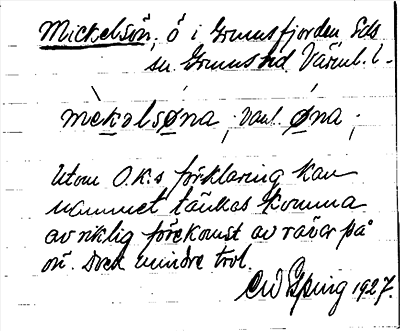 Mickelsön, ö i Grumsfjorden Eds
sn. Grums hd. Värml. l.
mekəlsøna, vanl. øna;
Utom O.K.s förklaring kan
namnet tänkas komma
av riklig förekomst av rävar på
ön. Dock mindre trol.
CW Eping 1927.